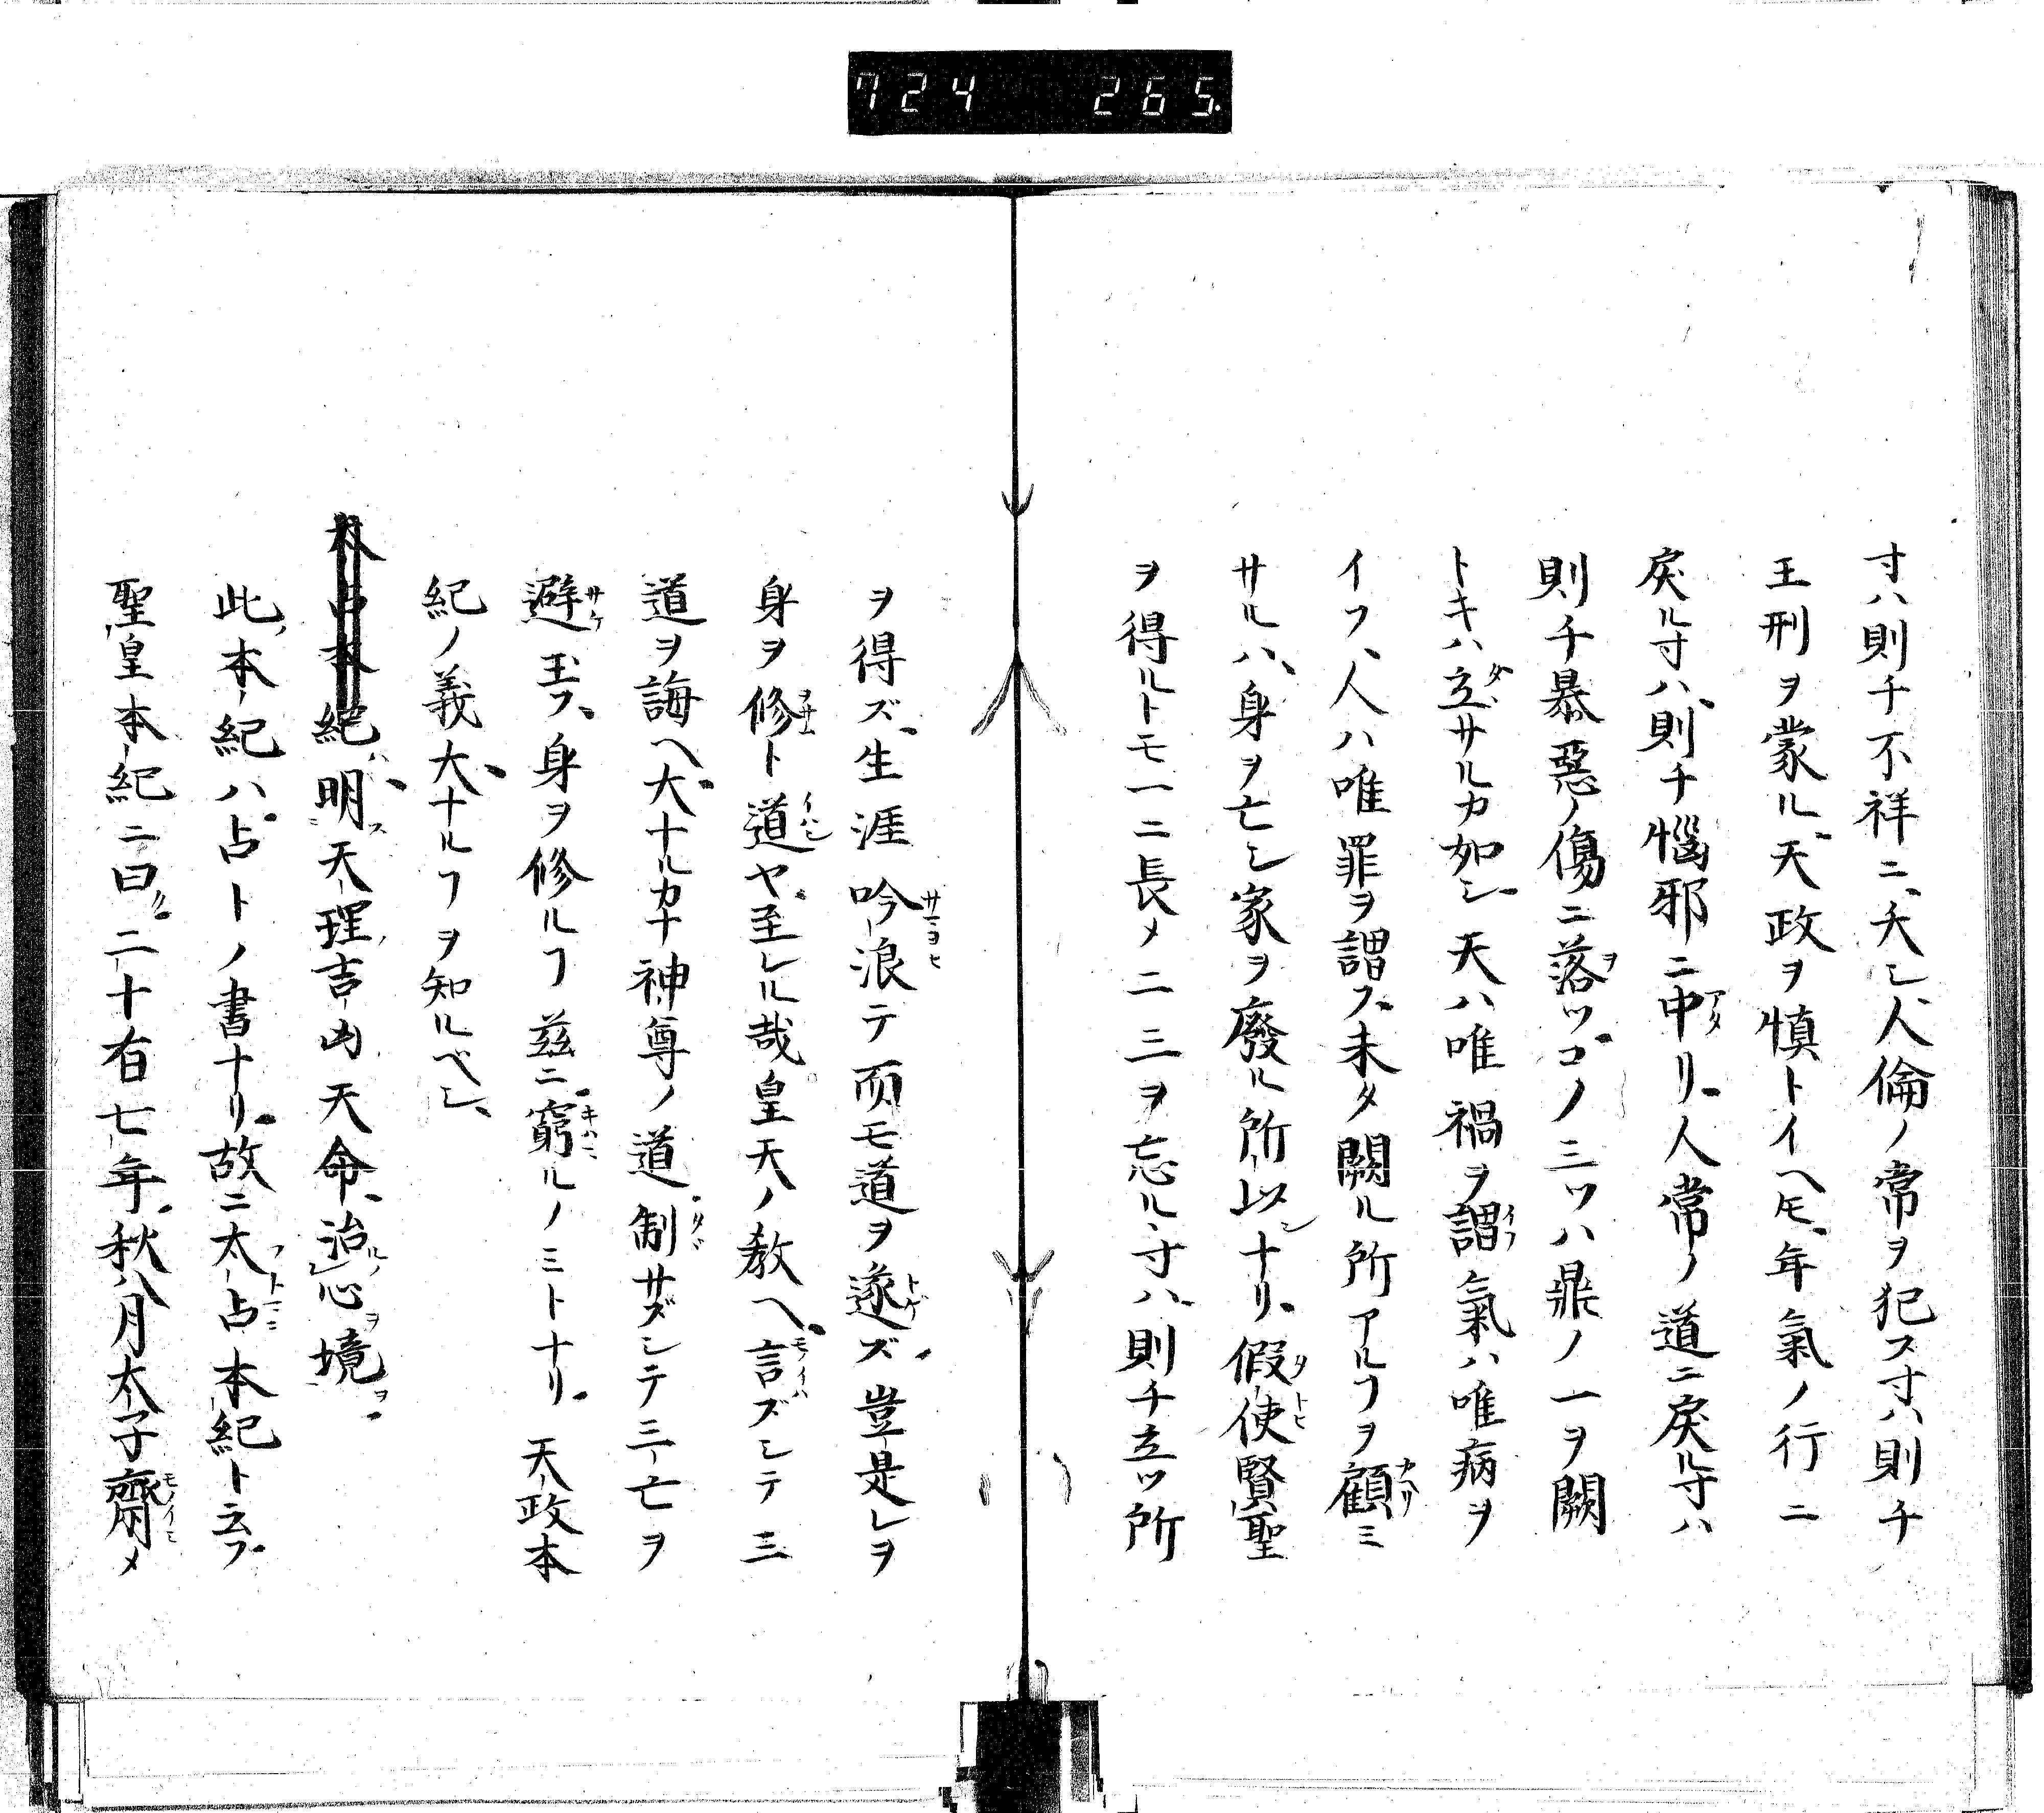 724 265.
寸ハ則チ不祥ニ、夭シ、人倫ノ常ヲ犯ス寸ハ則チ
王刑ヲ蒙ル、天政ヲ慎トイヘ𪜈、年氣ノ行ニ
戾ル寸ハ、則チ惱邪ニ中リ、人常ノ道ニ戾ル寸ハ
則チ暴惡ノ傷ニ落ツ、コノ三ツハ鼎ノ一ヲ闕
トキハ立サルカ如シ、天ハ唯禍ヲ謂氣ハ唯病ヲ
イフ、人ハ唯罪ヲ謂フ、未タ闕ル所アルヿヲ顧ミ
サルハ、身ヲ亡シ家ヲ廢ル所以ナリ、假使賢聖
ヲ得ルトモ一ニ長メ二三ヲ忘ル、寸ハ、則チ立ツ所
ヲ得ズ、生涯吟浪テ而モ道ヲ遂ズ、豈是レヲ
身ヲ修ト道ヤ、至レル哉皇天ノ教ヘ、言ズシテ三
道ヲ誨ヘ、大ナルカナ神尊ノ道制サズシテ三亡ヲ
避玉フ、身ヲ修ルヿ茲ニ窮ルノミトナリ、天政本
紀ノ義大ナルヿヲ知ルベシ、
太占本紀ハ、明天理吉凶天命、治心境ヲ、
此本紀ハ、占トノ書ナリ、故ニ太占本紀ト云フ、
聖皇本紀ニ曰、二十有七年、秋八月太子齋メ